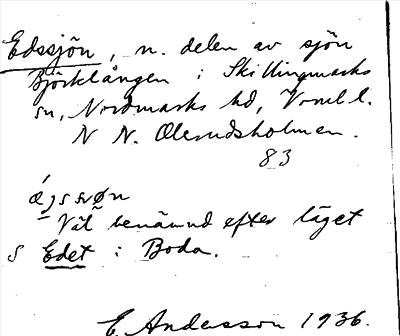 Edssjön, n. delen av sjön
Björklången i Skillingmarks
sn, Nordmarks hd, Vrml l.
N N. Olerudsholmen.
83
Väl benämnd efter läget
S Edet i Boda.
E. Andersson 1936.